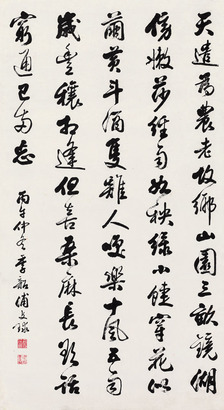 天遣為農老故鄉山園三畝鏡湖
傍嫩莎經雨如秧綠小蝶穿花似
繭黃斗酒隻雞人咲樂十風五雨
歲豐穰相逢但喜桑麻長欲話
窮通已兩忘
丙午仲冬